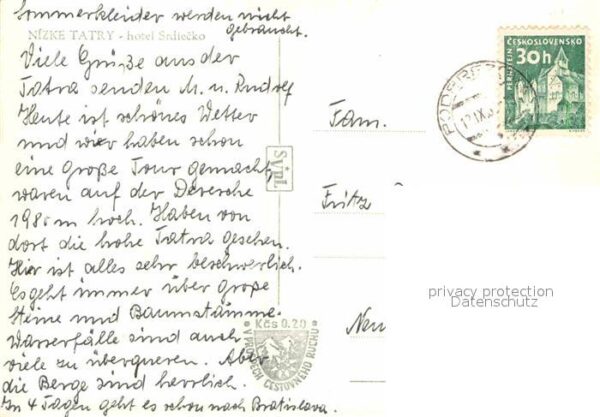 Sommerkleider werden nicht
gebraucht.
NÍZKE TATRY - hotel Srdiečko
Viele Grüße aus der
Tatra senden M. u. Rudolf
Heute ist schönes Wetter
und wier haben schon
eine große Tour gemacht,
waren auf der Deresche
1980 m hoch. Haben von
dort die hohe Tatra gesehen.
Hier ist alles sehr beschwerlich.
Es geht immer über große
Steine und Baumstämme.
Wasserfälle sind auch
viele zu überqueren. Aber
die Berge sind herrlich.
In 4 Tagen geht es schon nach Bratislava.
Sypl
Kčs 0.20
V PROSPĚCH CESTOVNÉHO RUCHU
ČESKOSLOVENSKO
30h
PERNŠTEJN
Fam.
Fritz
privacy protection
Datenschutz